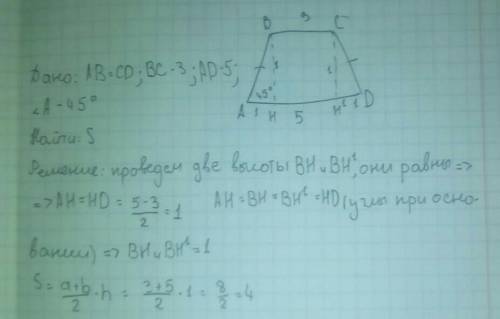 B 3 C
Дано: AB=CD; BC-3; AD-5;
∠A-45°
45°
A 1 H 5 H¹ 1 D
Найти: S
Решение: проведем две высоты BH и BH¹, они равны =>
=> AH=HD = 5-3/2 = 1 AH=BH=BH¹=HD (углы при осно-
вании) => BH и BH¹=1
S = a+b/2 · h = 3+5/2 · 1 = 8/2 = 4